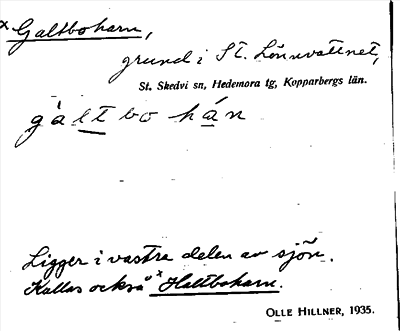 x Galtboharn,
grund i St. Lönnvattnet,
St. Skedvi sn, Hedemora tg, Kopparbergs län.
gàltbo hán
Ligger i västra delen av sjön.
Kallas också x Haltboharn.
OLLE HILLNER, 1935.